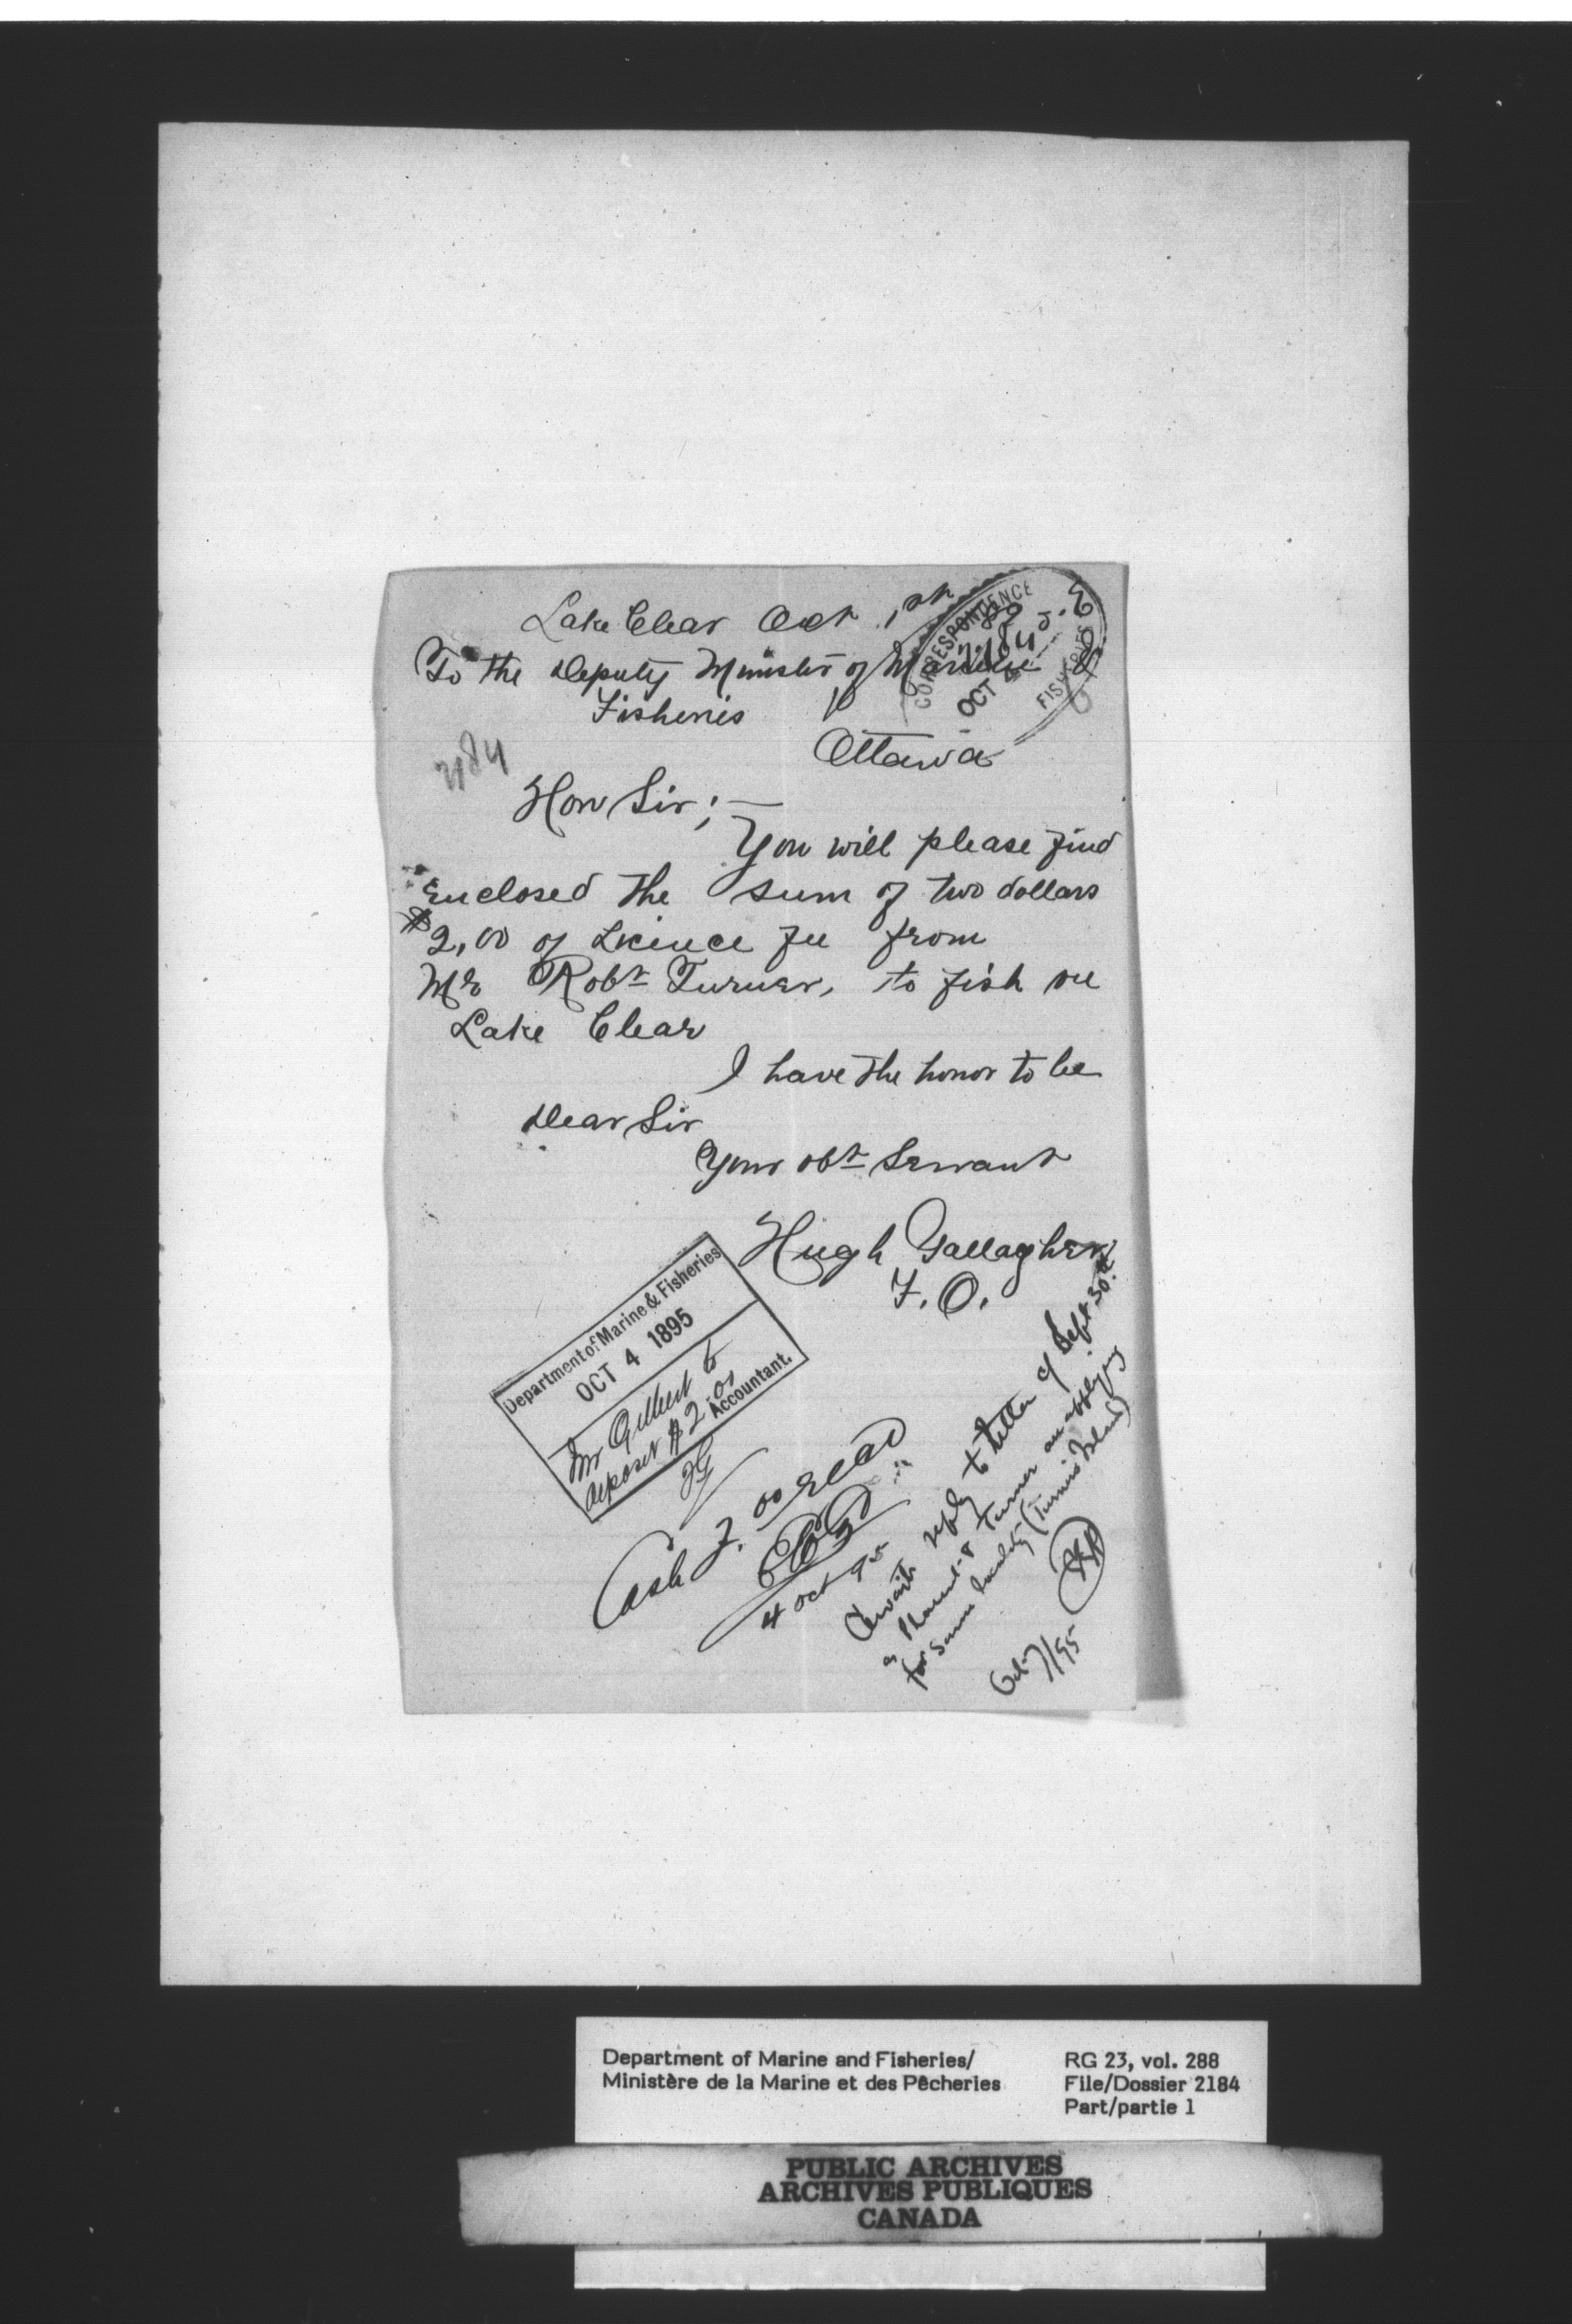 Lake Clear Oct 1st
CORRESPONDENCE
2184
OCT 4
FISHERIES
To the Deputy Minister of Marine &
Fisheries
Ottawa
2184
Hon Sir; —
You will please find
Enclosed the sum of two dollars
$2,00 of Licience fee from
Mr Robt Turner, to fish on
Lake Clear
I have the honor to be
Dear Sir
Your obt Servant
Hugh Gallagher
F. O.
Department of Marine & Fisheries
OCT 4 1895
Mr Gilbert to
deposit $2.00
Accountant.
Cash 2.00 recd
4 Oct 95
Await reply to letter of Sept 30th
as & Turner are applying
for same locality (Turners Island)
Oct 7/95
Department of Marine and Fisheries/
Ministère de la Marine et des Pêcheries
RG 23, vol. 288
File/Dossier 2184
Part/partie 1
PUBLIC ARCHIVES
ARCHIVES PUBLIQUES
CANADA